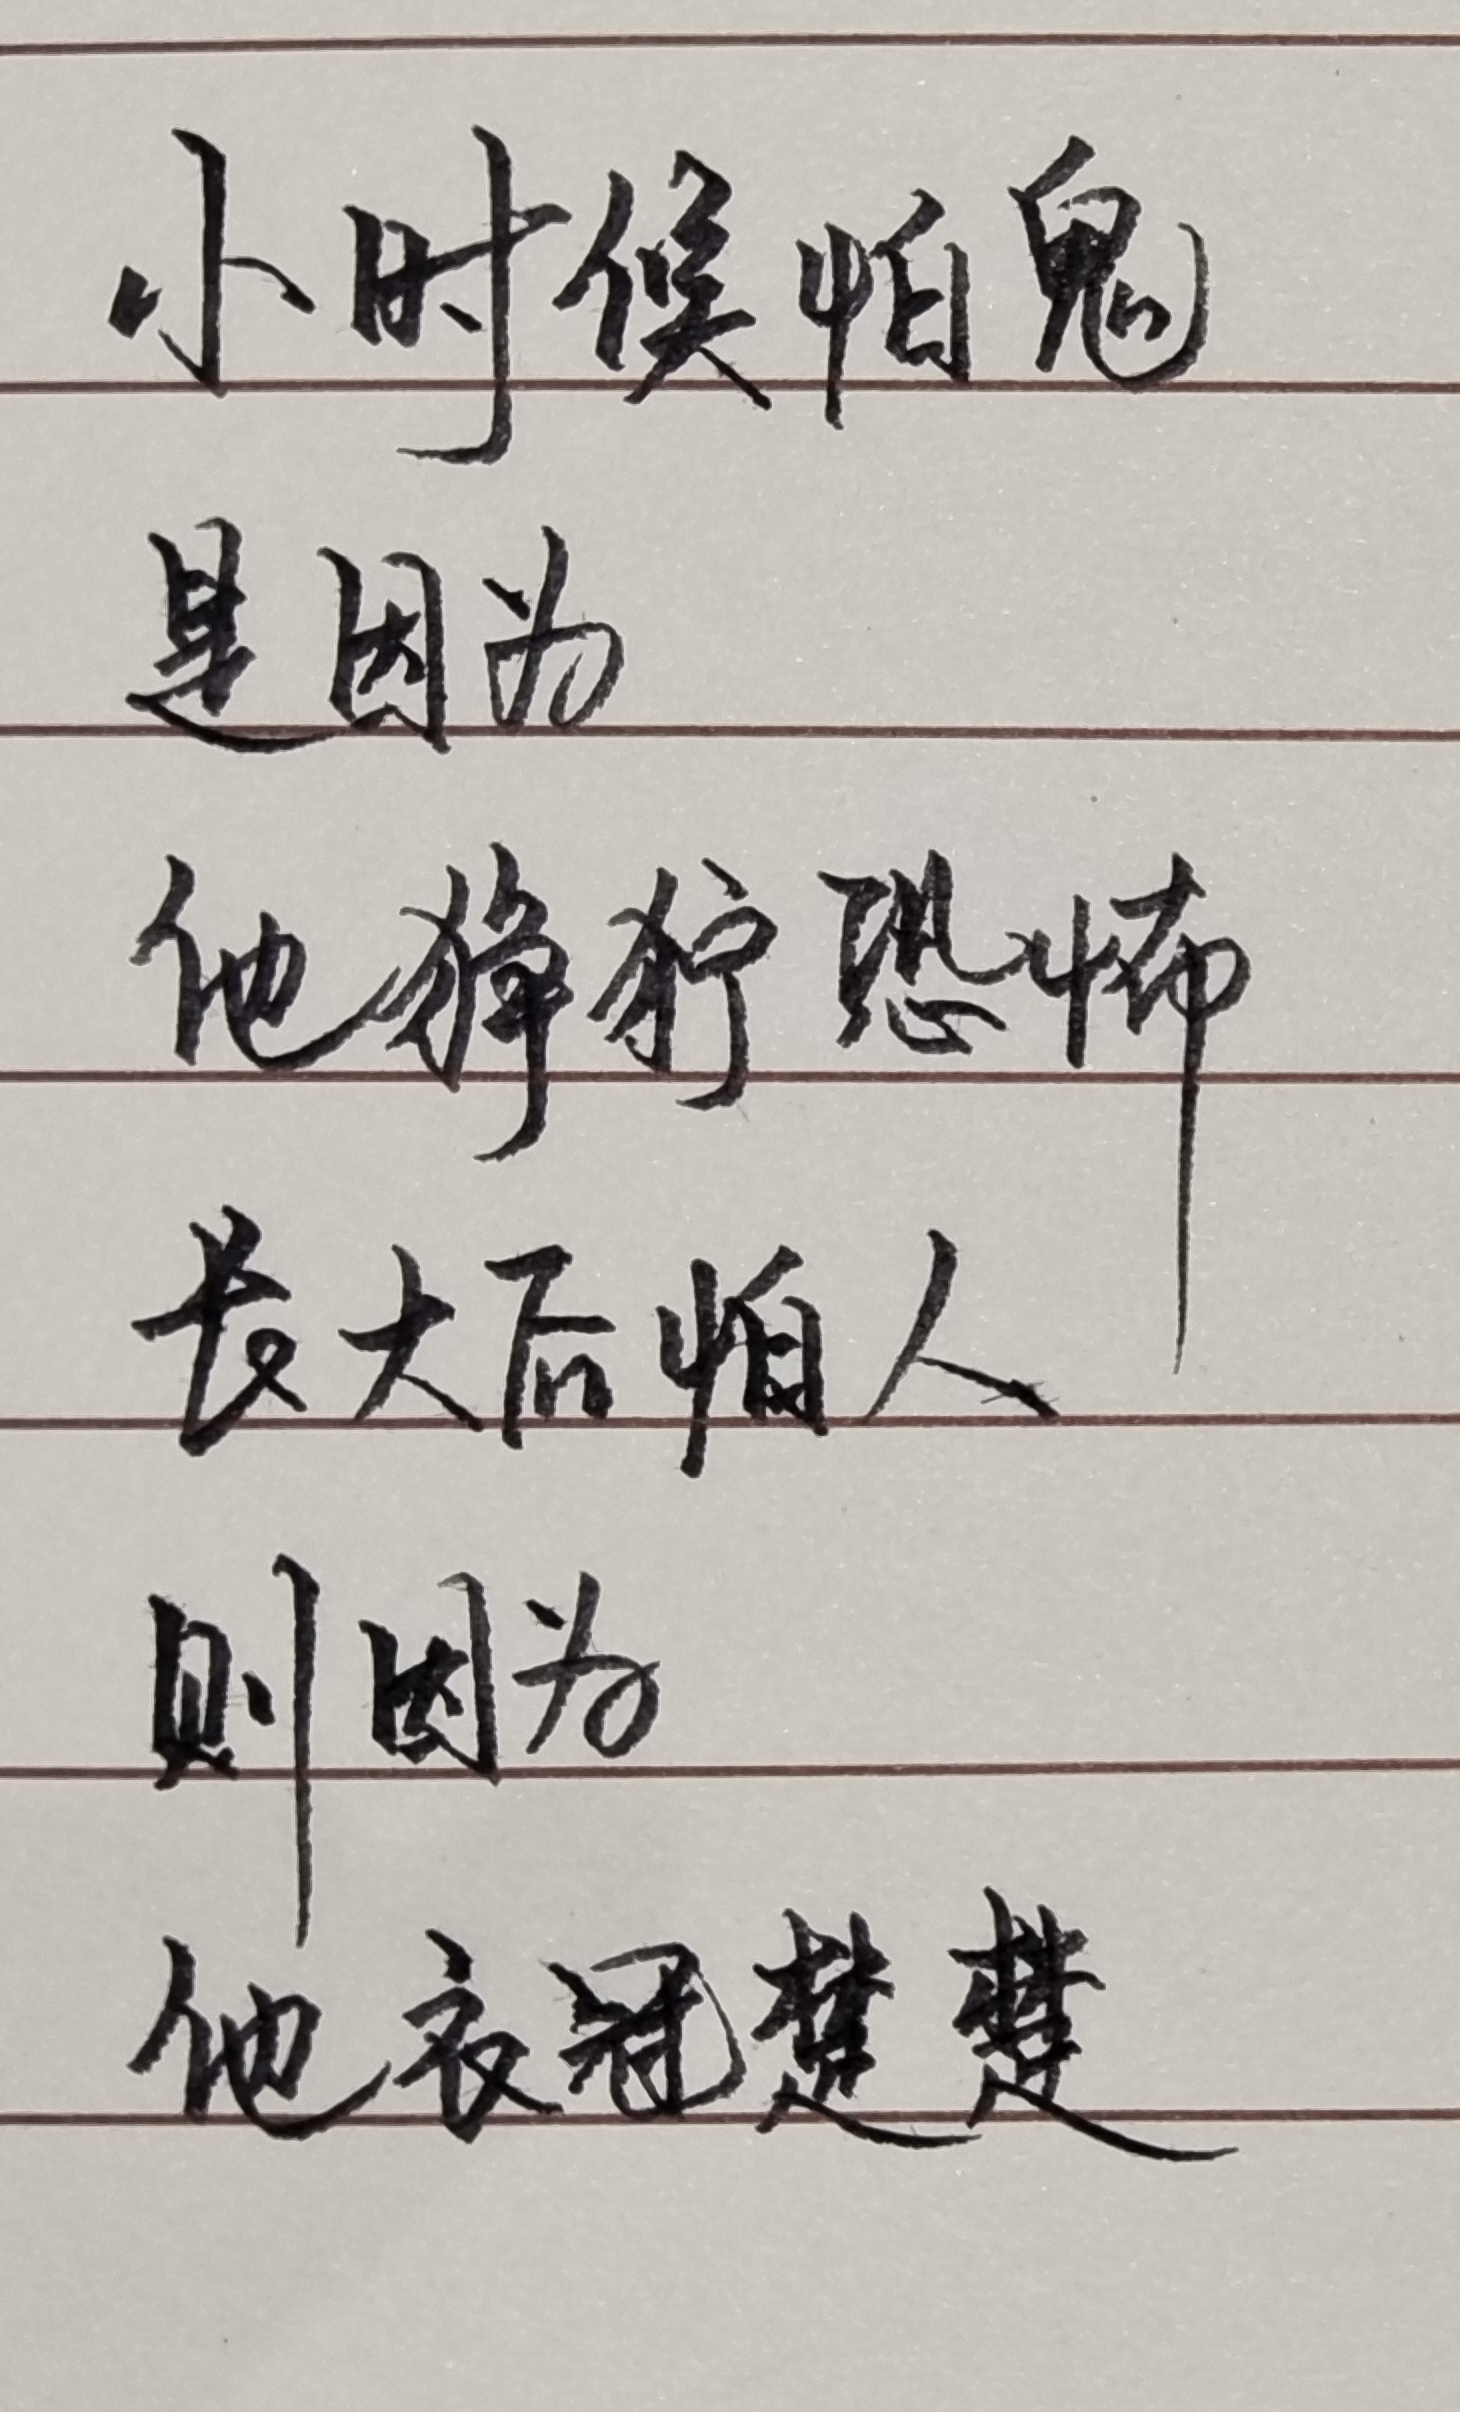 小时候怕鬼
是因为
他狰狞恐怖
长大后怕人
则因为
他衣冠楚楚